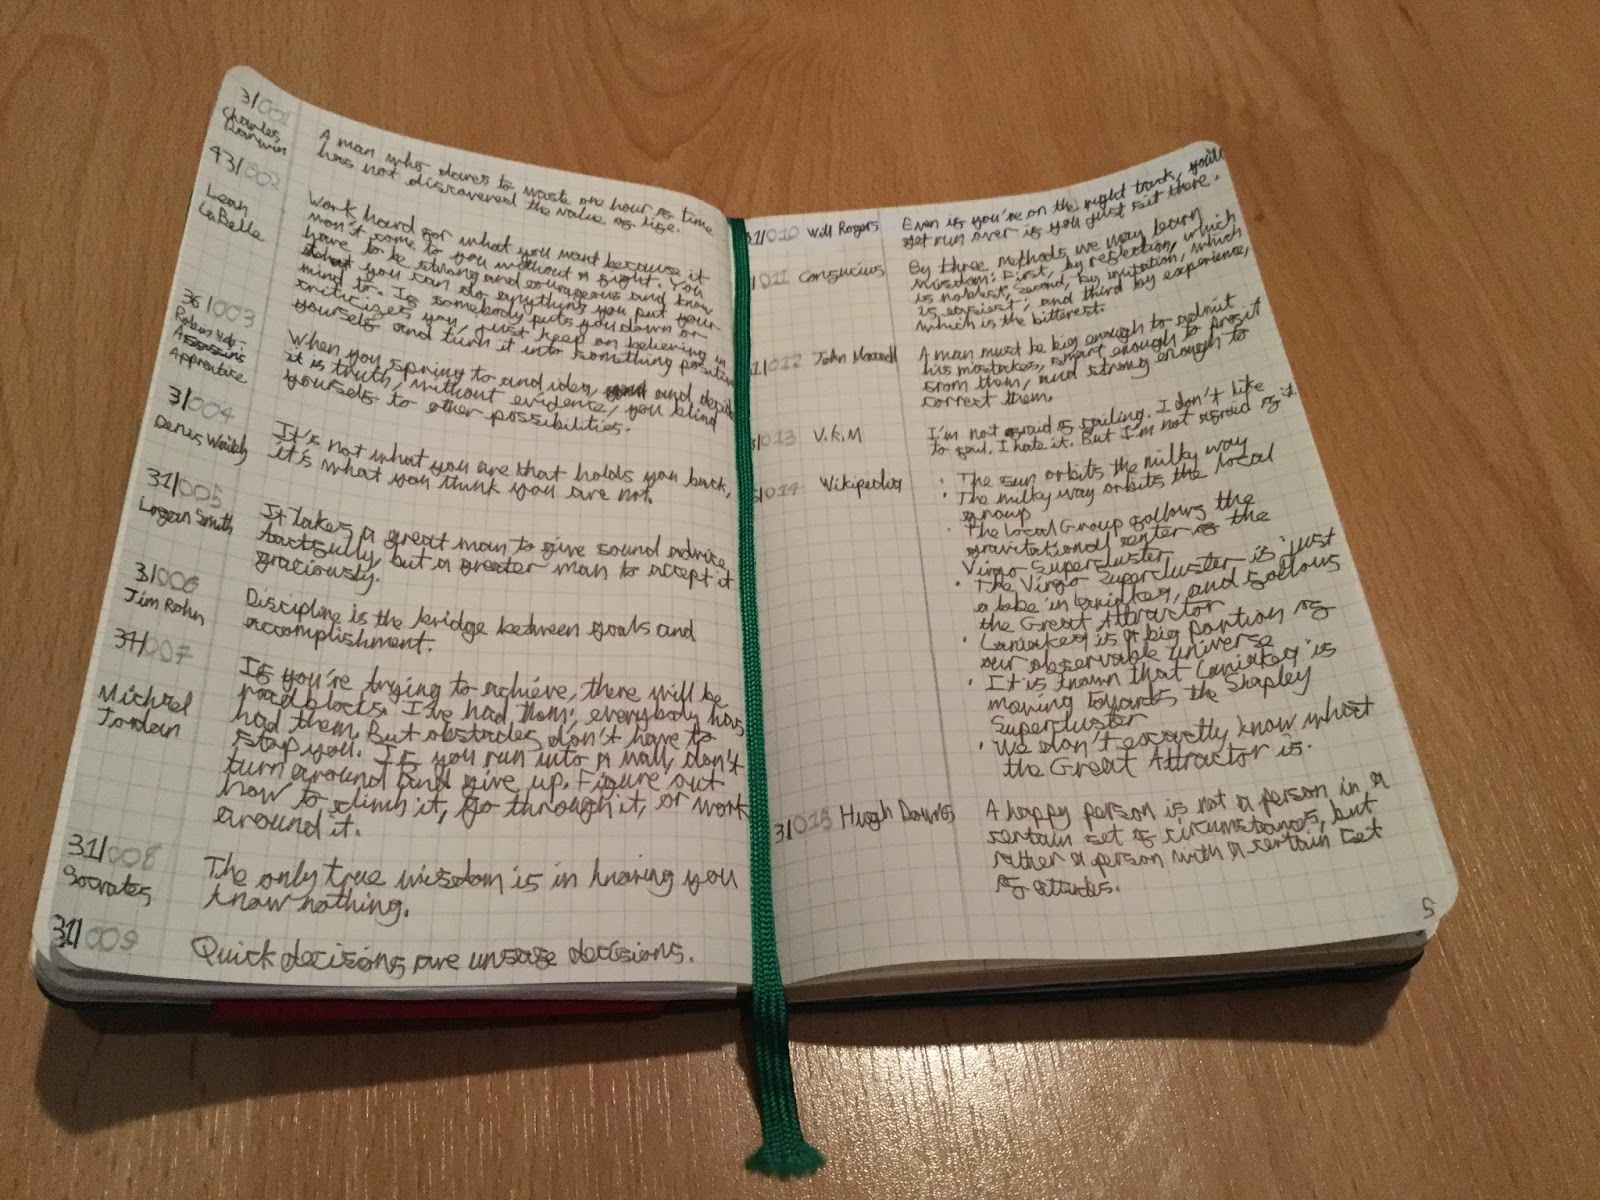 3/001
Charles
Darwin
A man who dares to waste one hour of time
has not discovered the value of life.
43/002
Lean
LaBelle
Work hard for what you want because it
won't come to you without a fight. You
have to be strong and courageous and know
that you can do anything you put your
mind to. If somebody puts you down or
criticizes you, just keep on believing in
yourself and turn it into something positive
36/003
Robin Hobb -
Assassins
Apprentice
When you spring to and idea, and decide
it is truth, without evidence, you blind
yourself to other possibilities.
3/004
Denis Waitley
It's not what you are that holds you back,
it's what you think you are not.
31/005
Logan Smith
It takes a great man to give sound advice
tactfully, but a greater man to accept it
graciously.
3/006
Jim Rohn
Discipline is the bridge between goals and
accomplishment.
37/007
Michael
Jordan
If you're trying to achieve, there will be
roadblocks. I've had them; everybody has
had them. But obstacles don't have to
stop you. If you run into a wall, don't
turn around and give up. Figure out
how to climb it, go through it, or work
around it.
31/008
Socrates
The only true wisdom is in knowing you
know nothing.
31/009
Quick decisions are unsafe decisions.
31/010 Will Rogers
Even if you're on the right track, you'll
get run over if you just sit there.
/011 Confucius
By three methods we may learn
wisdom: First, by reflection, which
is noblest; Second, by imitation, which
is easiest; and third by experience,
which is the bitterest.
31/012 John Maxwell
A man must be big enough to admit
his mistakes, smart enough to profit
from them, and strong enough to
correct them.
3/013 V.K.M
I'm not afraid of failing. I don't like
to fail. I hate it. But I'm not afraid of it.
3/014 Wikipedia
• The sun orbits the milky way
• The milky way orbits the local
group
• The Local Group follows the
gravitational center of the
Virgo Supercluster
• The Virgo Supercluster is 'just
a lobe' in Laniakea, and follows
the Great Attractor
• Laniakea is a big portion of
our observable universe
• It is known that Laniakea is
moving towards the Shapley
Supercluster
• We don't exactly know what
the Great Attractor is.
3/015 Hugh Downs
A happy person is not a person in a
certain set of circumstances, but
rather a person with a certain set
of attitudes.
5